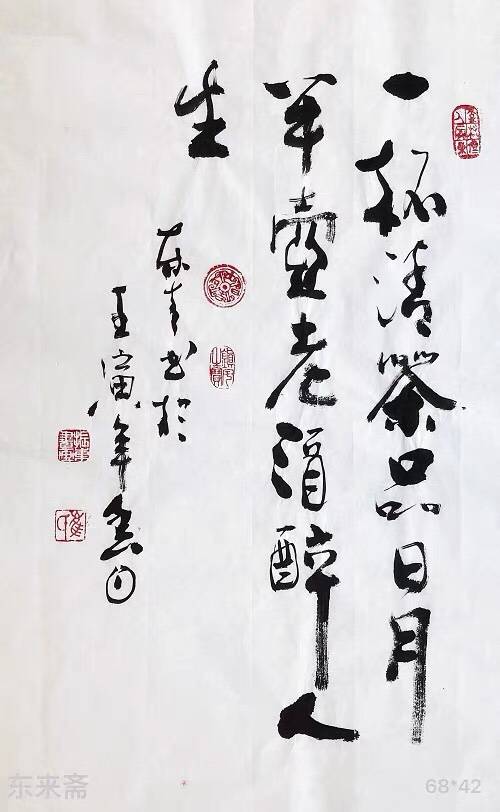 一杯清茶品日月
半壺老酒醉人
生
书於
壬寅年
东来斋
68*42